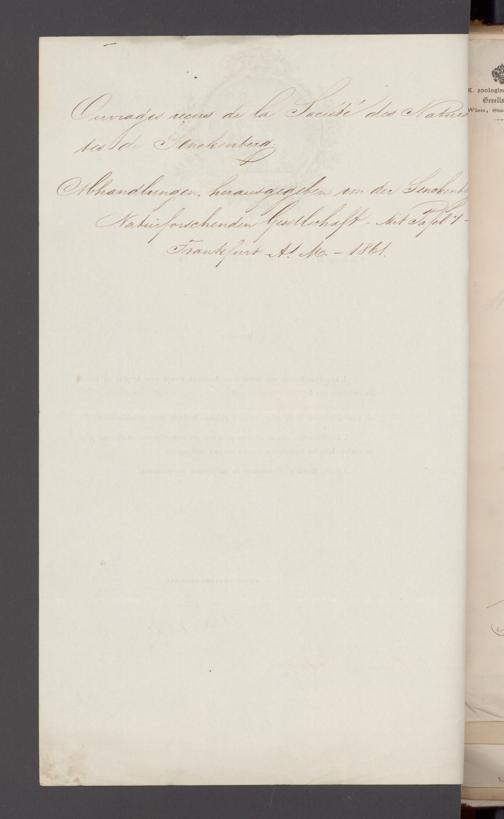 Ouvrages reçus de la Société des Natura
tes de Senckenberg.
Abhandlungen, herausgegeben von der Senckenb
Naturforschenden Gesellschaft - Mit Tafel 1-
Frankfurt A. M. - 1861.
K. zoologis
Gesells
Wien, Sta